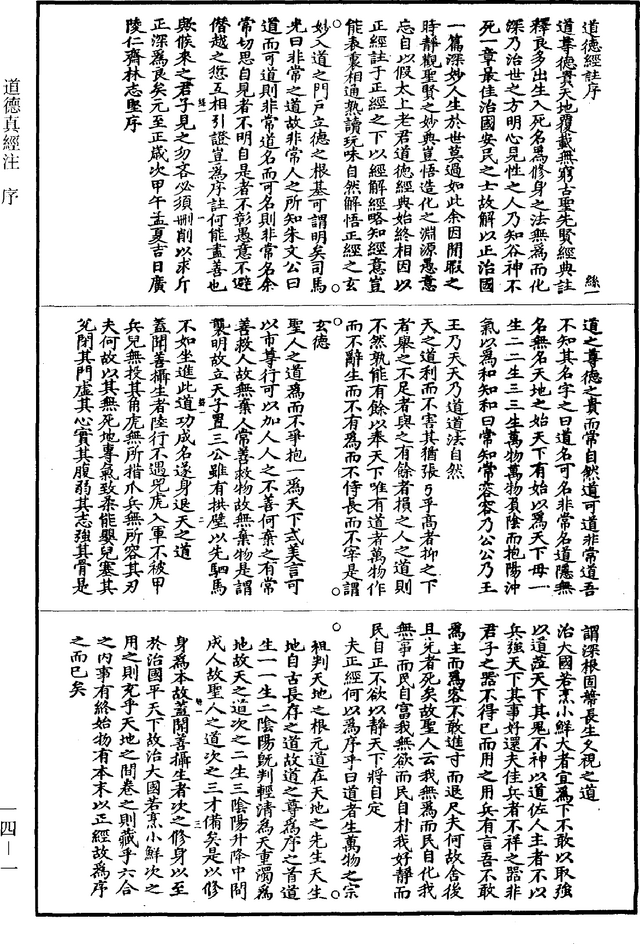 道德經註序 絲一
道尊德貴天地覆載無窮古聖先賢經典註
釋良多出生入死名爲修身之法無爲而化
深乃治世之方明心見性之人乃知谷神不
死一章最佳治國安民之士故解以正治國
一篇深妙人生於世莫過如此余因閒暇之
時靜觀聖賢之妙典豈悟造化之淵源愚意
忘自以假太上老君道德經典始終相因以
正經註于正經之下以經解經略知經意豈
能表裏相通熟讀玩味自然解悟正經之玄
妙入道之門戶立德之根基可謂明矣司馬
光曰非常之道故非常人之所知朱文公曰
道而可道則非常道名而可名則非常名余
常切思自見者不明自是者不彰愚意不避
僭越之愆互相引證豈爲序註何能盡善也
歟俟來之君子見之勿吝必須刪削以求斤
正深爲良矣元至正歲次甲午孟夏吉日廣
陵仁齋林志堅序
道之尊德之貴而常自然道可道非常道吾
不知其名字之曰道名可名非常名道隱無
名無名天地之始天下有始以爲天下母一
生二二生三三生萬物萬物負陰而抱陽沖
氣以爲和知和曰常知常容容乃公公乃王
王乃天天乃道道法自然
天之道利而不害其猶張弓乎高者抑之下
者舉之不足者與之有餘者損之人之道則
不然孰能有餘以奉天下唯有道者萬物作
而不辭生而不有爲而不恃長而不宰是謂
玄德
聖人之道爲而不爭抱一爲天下式美言可
以市尊行可以加人人之不善何棄之有常
善救人故無棄人常善救物故無棄物是謂
襲明故立天子置三公雖有拱璧以先駟馬
不如坐進此道功成名遂身退天之道
蓋聞善攝生者陸行不遇兕虎入軍不被甲
兵兕無投其角虎無所措爪兵無所容其刃
夫何故以其無死地專氣致柔能嬰兒塞其
兌閉其門虛其心實其腹弱其志強其骨是
謂深根固蔕長生久視之道
治大國若烹小鮮大者宜爲下不敢以取強
以道蒞天下其鬼不神以道佐人主者不以
兵強天下其事好還夫佳兵者不祥之器非
君子之器不得已而用之用兵有言吾不敢
爲主而爲客不敢進寸而退尺夫何故舍後
且先者死矣故聖人云我無爲而民自化我
無事而民自富我無欲而民自朴我好靜而
民自正不欲以靜天下將自定
夫正經何以爲序乎曰道者生萬物之宗
祖判天地之根元道在天地之先生天生
地自古長存之道故道之尊爲序之首道
生一一生二陰陽旣判輕清爲天重濁爲
地故天之道次之二生三陰陽升降中間
成人故聖人之道次之三才備矣是以修
身爲本故蓋聞善攝生者次之修身以至
於治國平天下故治大國若烹小鮮次之
用之則充乎天地之間卷之則藏乎六合
之內事有終始物有本末以正經故爲序
之而已矣
道德真經注 序
四—一